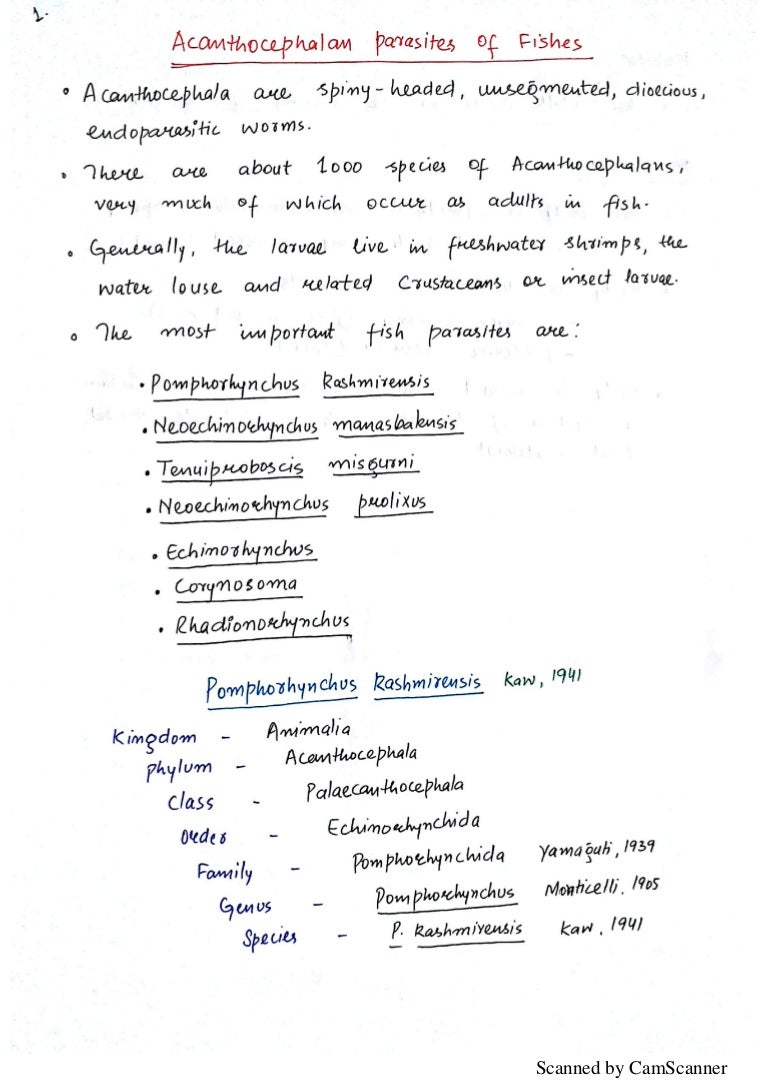 1.
Acanthocephalan parasites of Fishes
• Acanthocephala are spiny-headed, unsegmented, dioecious,
endoparasitic worms.
• There are about 1000 species of Acanthocephalans,
very much of which occur as adults in fish.
• Generally, the larvae live in freshwater shrimps, the
water louse and related Crustaceans or insect larvae.
• The most important fish parasites are:
• Pomphorhynchus Kashmirensis
• Neoechinorhynchus manasbalensis
• Tenuiproboscis misgurni
• Neoechinorhynchus prolixus
• Echinorhynchus
• Corynosoma
• Rhadionorhynchus
Pomphorhynchus Kashmirensis Kaw, 1941
Kingdom - Animalia
Phylum - Acanthocephala
Class - Palaecanthocephala
Order - Echinorhynchida
Family - Pomphorhynchida Yamaguti, 1939
Genus - Pomphorhynchus Monticelli, 1905
Species - P. Kashmirensis Kaw, 1941
Scanned by CamScanner